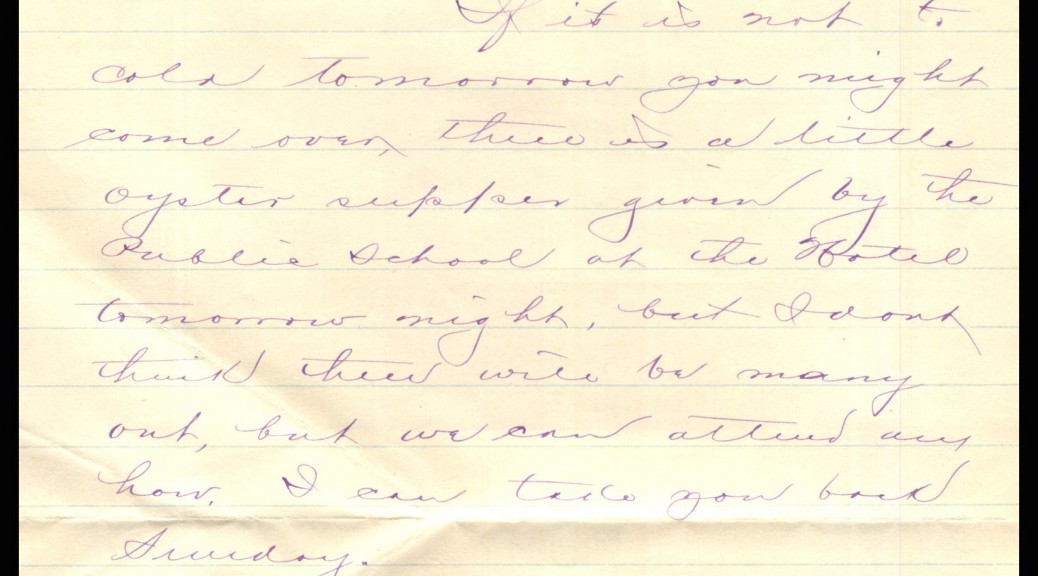 If it is not t.
cold tomorrow you might
come over, there is a little
oyster supper given by the
Public School at the Hotel
tomorrow night, but I dont
think there will be many
out, but we can attend any
how. I can take you back
Sunday.